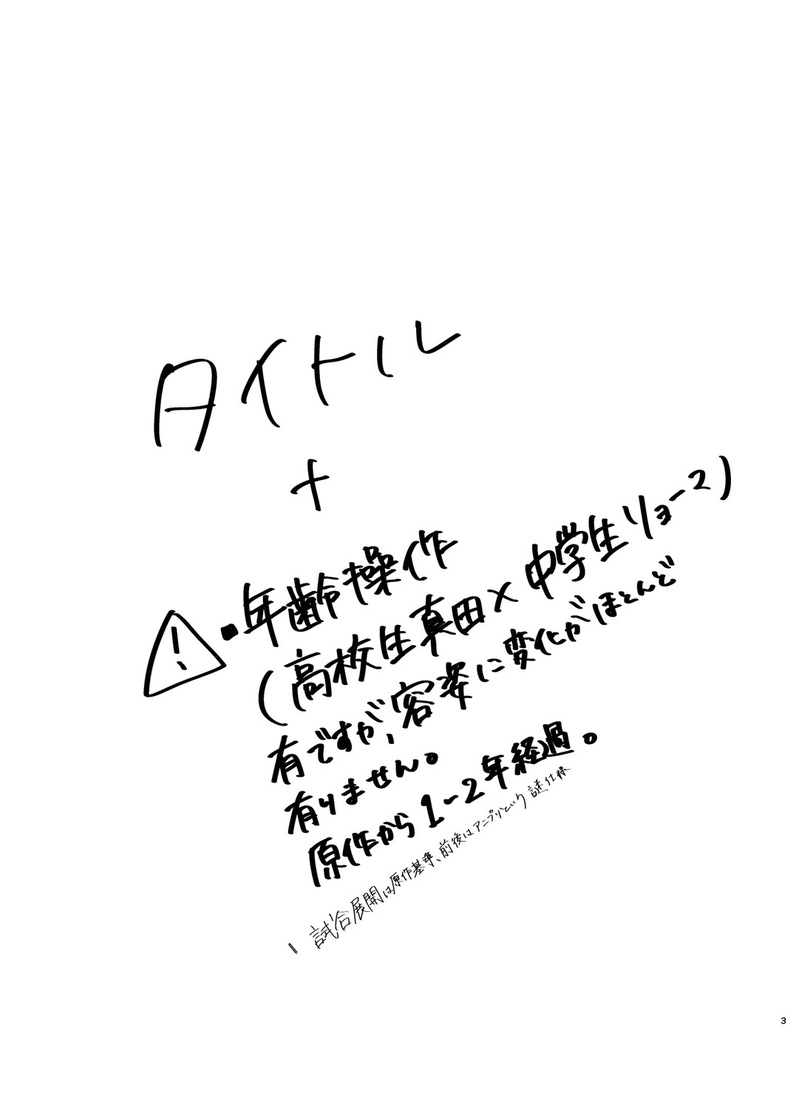 タイトル
+
・年齢操作
(高校生真田×中学生リョーマ)
有ですが、容姿に変化がほとんど
有りません。
原作から1-2年経過。
試合展開は原作基準、前後はアニプリという謎仕様
3